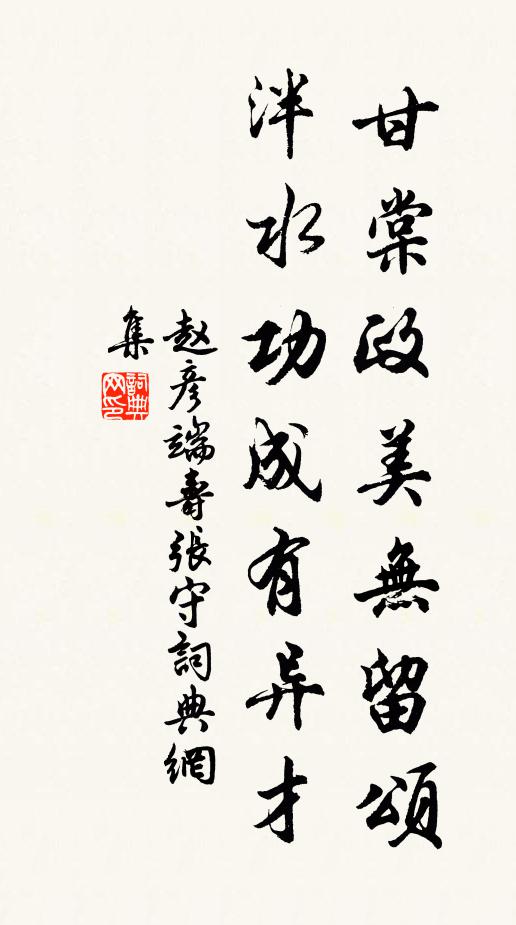 甘棠政美無留頌
泮水功成有异才
赵彦端壽張守詞典網
集
詞典
网印